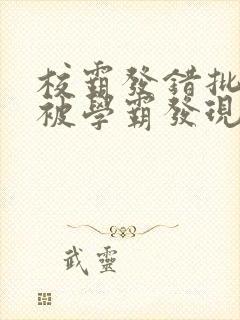 校霸發錯批
被學霸發現
武靈